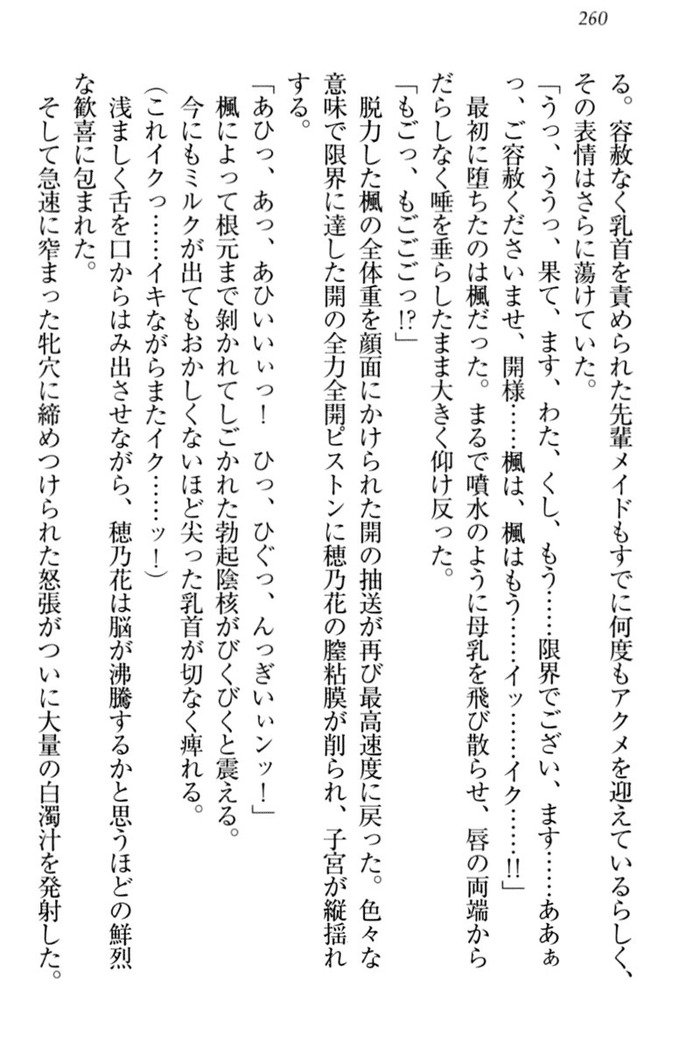 260
る。容赦なく乳首を責められた先輩メイドもすでに何度もアクメを迎えているらしく、
その表情はさらに蕩けていた。
「うっ、ううっ、果て、ます、わた、くし、もう……限界でござい、ます……ああぁ
っ、ご容赦くださいませ、開様……楓は、楓はもう……イッ……イク……!!」
最初に堕ちたのは楓だった。まるで噴水のように母乳を飛び散らせ、唇の両端から
だらしなく唾を垂らしたまま大きく仰け反った。
「もごっ、もごごごっ!?」
脱力した楓の全体重を顔面にかけられた開の抽送が再び最高速度に戻った。色々な
意味で限界に達した開の全力全開ピストンに穂乃花の膣粘膜が削られ、子宮が縦揺れ
する。
「あひっ、あっ、あひいいぃっ! ひっ、ひぐっ、んっぎいぃンッ!」
楓によって根元まで剝かれてしごかれた勃起陰核がびくびくと震える。
今にもミルクが出てもおかしくないほど尖った乳首が切なく痺れる。
(これイクっ……イキながらまたイク……ッ!)
浅ましく舌を口からはみ出させながら、穂乃花は脳が沸騰するかと思うほどの鮮烈
な歓喜に包まれた。
そして急速に窄まった牝穴に締めつけられた怒張がついに大量の白濁汁を発射した。